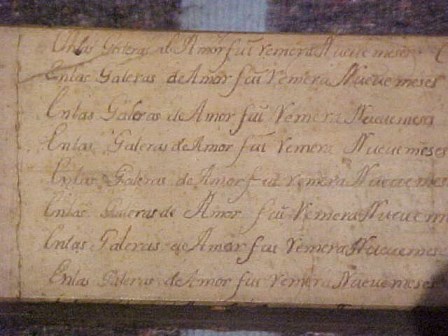 Entas Galeras de Amor fui remera Nueue meses
Entas Galeras de Amor fui remera Nueue meses
Entas Galeras de Amor fui remera Nueue meses
Entas Galeras de Amor fui remera Nueue meses
Entas Galeras de Amor fui remera Nueue mes
Entas Galeras de Amor fui remera Nueue m
Entas Galeras de Amor fui remera Nueue mese
Entas Galeras de Amor fui remera Nueue meses